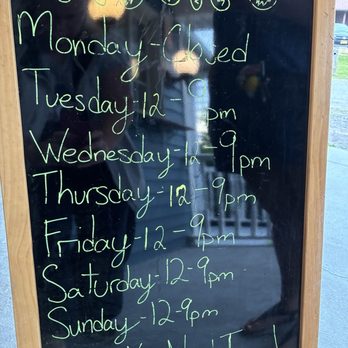 Monday-Closed
Tuesday-12-9pm
Wednesday-12-9pm
Thursday-12-9pm
Friday-12-9pm
Saturday-12-9pm
Sunday-12-9pm